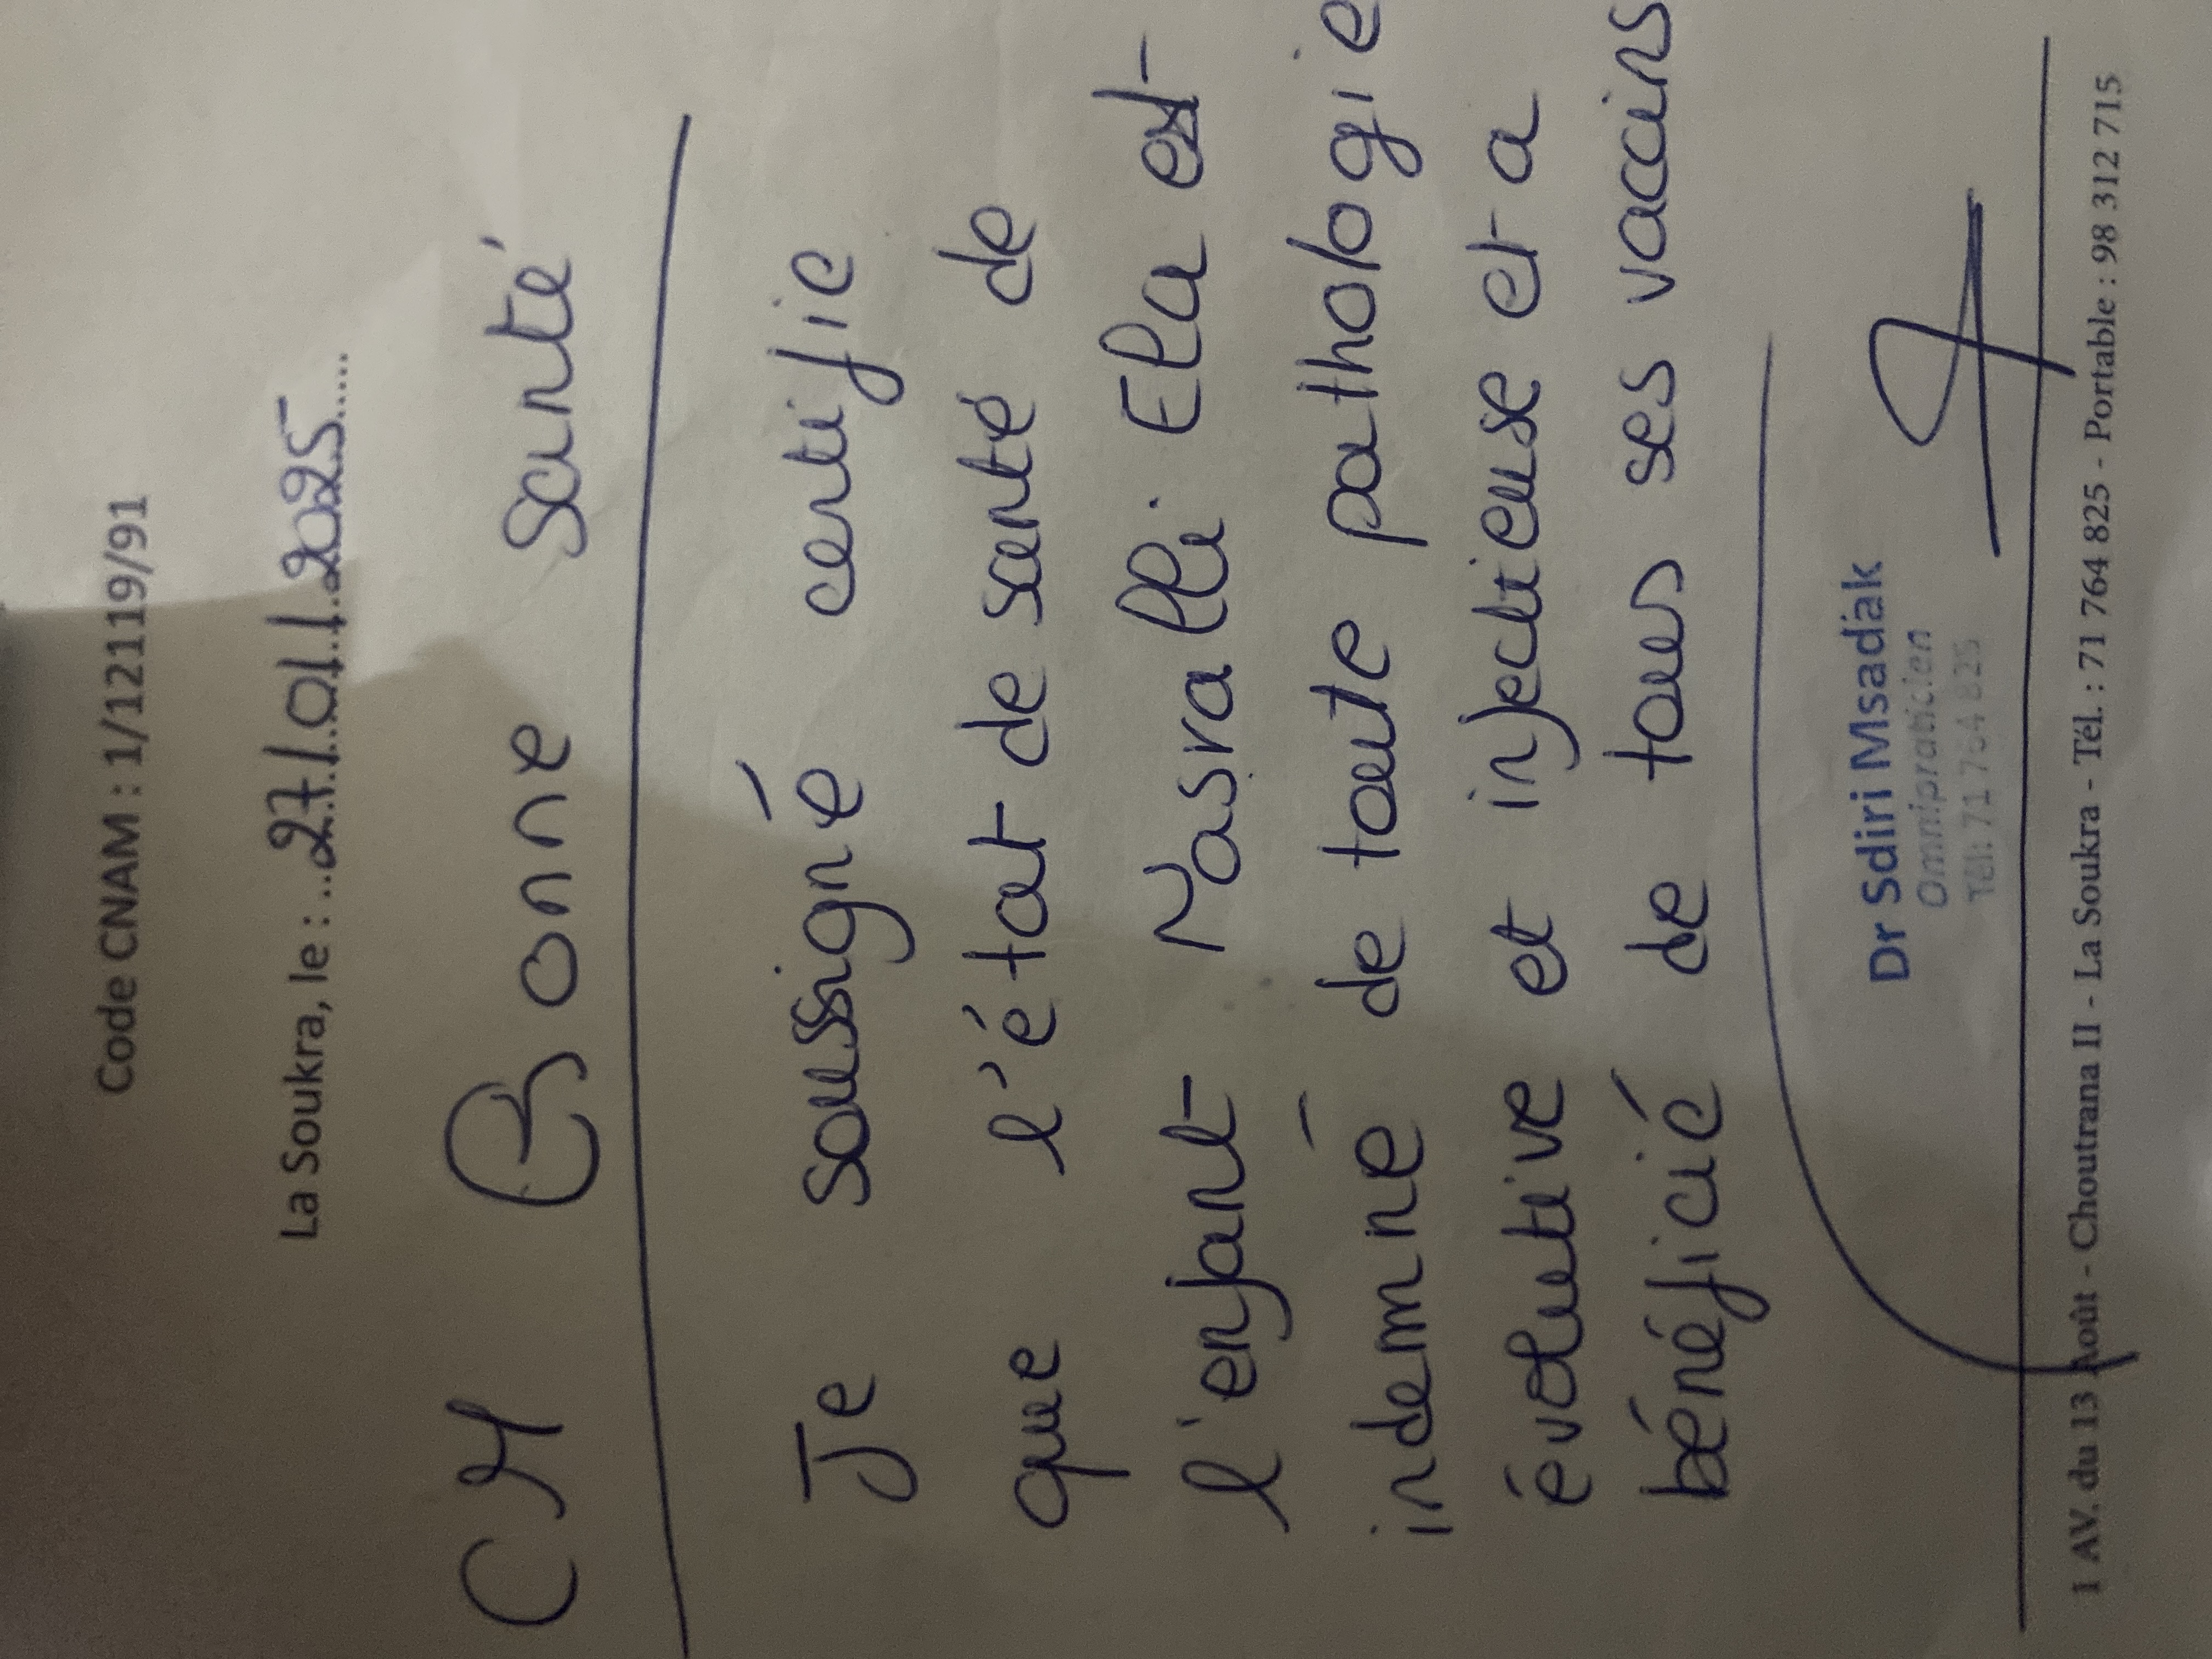 Code CNAM : 1/12119/91
La Soukra, le : ..27/01/2025.....
CM Bonne santé
Je soussigné certifie
que l'état de santé de
l'enfant Nasralli Ela est
indemne de toute pathologie
évolutive et infectieuse et a
bénéficié de tous ses vaccins
Dr Sdiri Msadak
Omnipraticien
Tél: 71 764 825
1 AV. du 13 Août - Choutrana II - La Soukra - Tél. : 71 764 825 - Portable : 98 312 715